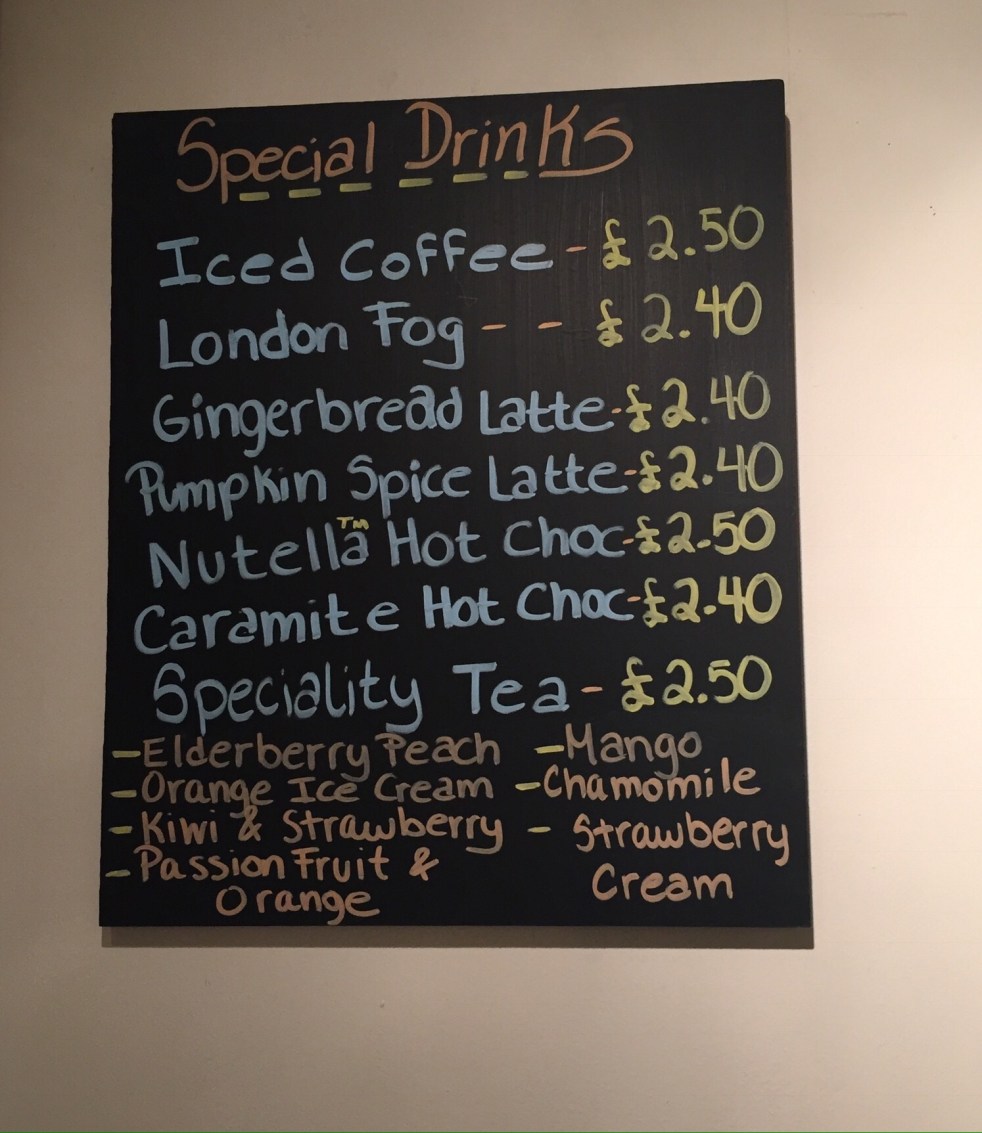 Special Drinks
Iced Coffee - £2.50
London Fog - - £2.40
Gingerbread Latte - £2.40
Pumpkin Spice Latte - £2.40
Nutella™ Hot Choc - £2.50
Caramite Hot Choc - £2.40
Speciality Tea - £2.50
- Elderberry Peach - Mango
- Orange Ice Cream - Chamomile
- Kiwi & Strawberry - Strawberry
- Passion Fruit & Cream
Orange